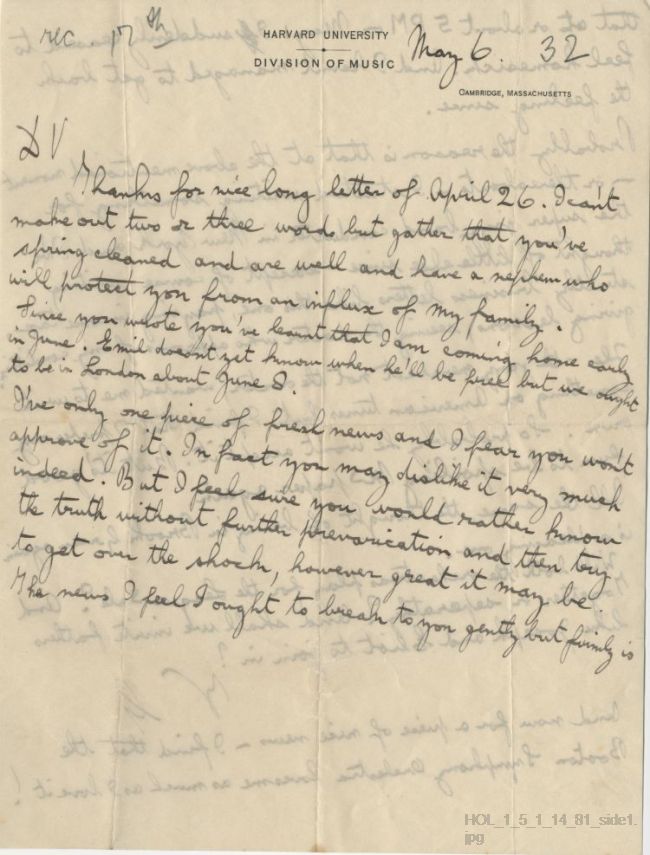 rec 17th
HARVARD UNIVERSITY
DIVISION OF MUSIC
May 6. 32
CAMBRIDGE, MASSACHUSETTS
D V
Thanks for nice long letter of April 26. I can't
make out two or three words but gather that you've
spring cleaned and are well and have a nephew who
will protect you from an influx of my family.
Since you wrote you've learnt that I am coming home early
in June. Emil doesn't yet know when he'll be free but we ought
to be in London about June 8.
I've only one piece of fresh news and I fear you won't
approve of it. In fact you may dislike it very much
indeed. But I feel sure you would rather know
the truth without further prevarication and then try
to get over the shock, however great it may be.
The news I feel I ought to break to you gently but firmly is
HOL_1_5_1_14_81_side1.
jpg